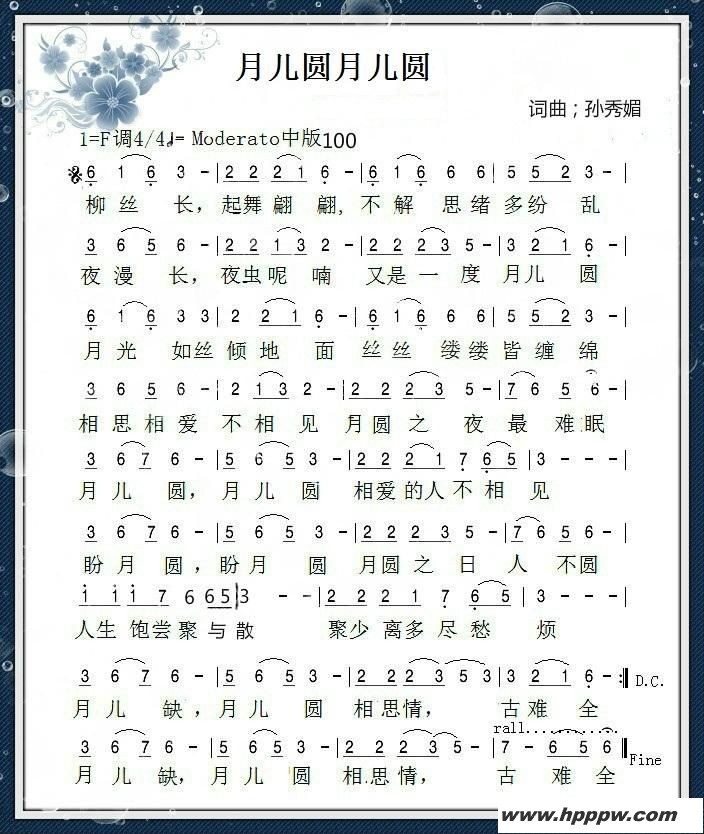 月儿圆月儿圆
词曲；孙秀媚
1=F调4/4♩= Moderato中版100
6 1 6 3 - | 2 2 2 1 6 - | 6 1 6 6 6 | 5 5 2 3 - |
柳丝 长，起舞翩 翩,不解 思绪多纷 乱
3 6 5 6 - | 2 2 1 3 2 - | 2 2 2 2 3 - | 3 2 1 6 - |
夜漫 长，夜虫呢 喃 又是一 度 月儿 圆
6 1 6 3 3 | 2 2 1 6 - | 6 1 6 6 6 | 5 5 2 3 - |
月光 如丝倾地 面 丝丝 缕缕皆缠 绵
3 6 5 6 | 2 1 3 2 - | 2 2 2 3 5 - | 7 6 5 6 - |
相思相爱 不相 见 月圆之 夜 最 难眠
3 6 7 6 - | 5 6 5 3 - | 2 2 2 1 7 6 5 | 3 - - - |
月儿 圆，月儿 圆 相爱的人不相 见
3 6 7 6 - | 5 6 5 3 - | 2 2 2 3 5 - | 7 6 5 6 - |
盼月 圆，盼月 圆 月圆之 日 人 不圆
1 1 1 7 6 6 5 3 - - | 2 2 1 7 6 5 | 3 - - - |
人生 饱尝聚与散 聚少离多尽愁 烦
3 6 7 6 - | 5 6 5 3 - | 2 2 2 3 5 3 | 3 2 1 6 - :| D.C.
月儿 缺，月儿 圆 相思情， 古难 全
rall..............
3 6 7 6 - | 5 6 5 3 - | 2 2 2 3 5 - | 7 - 6 5 6 | Fine
月儿 缺，月儿 圆 相思情， 古 难全
www.hpppw.com